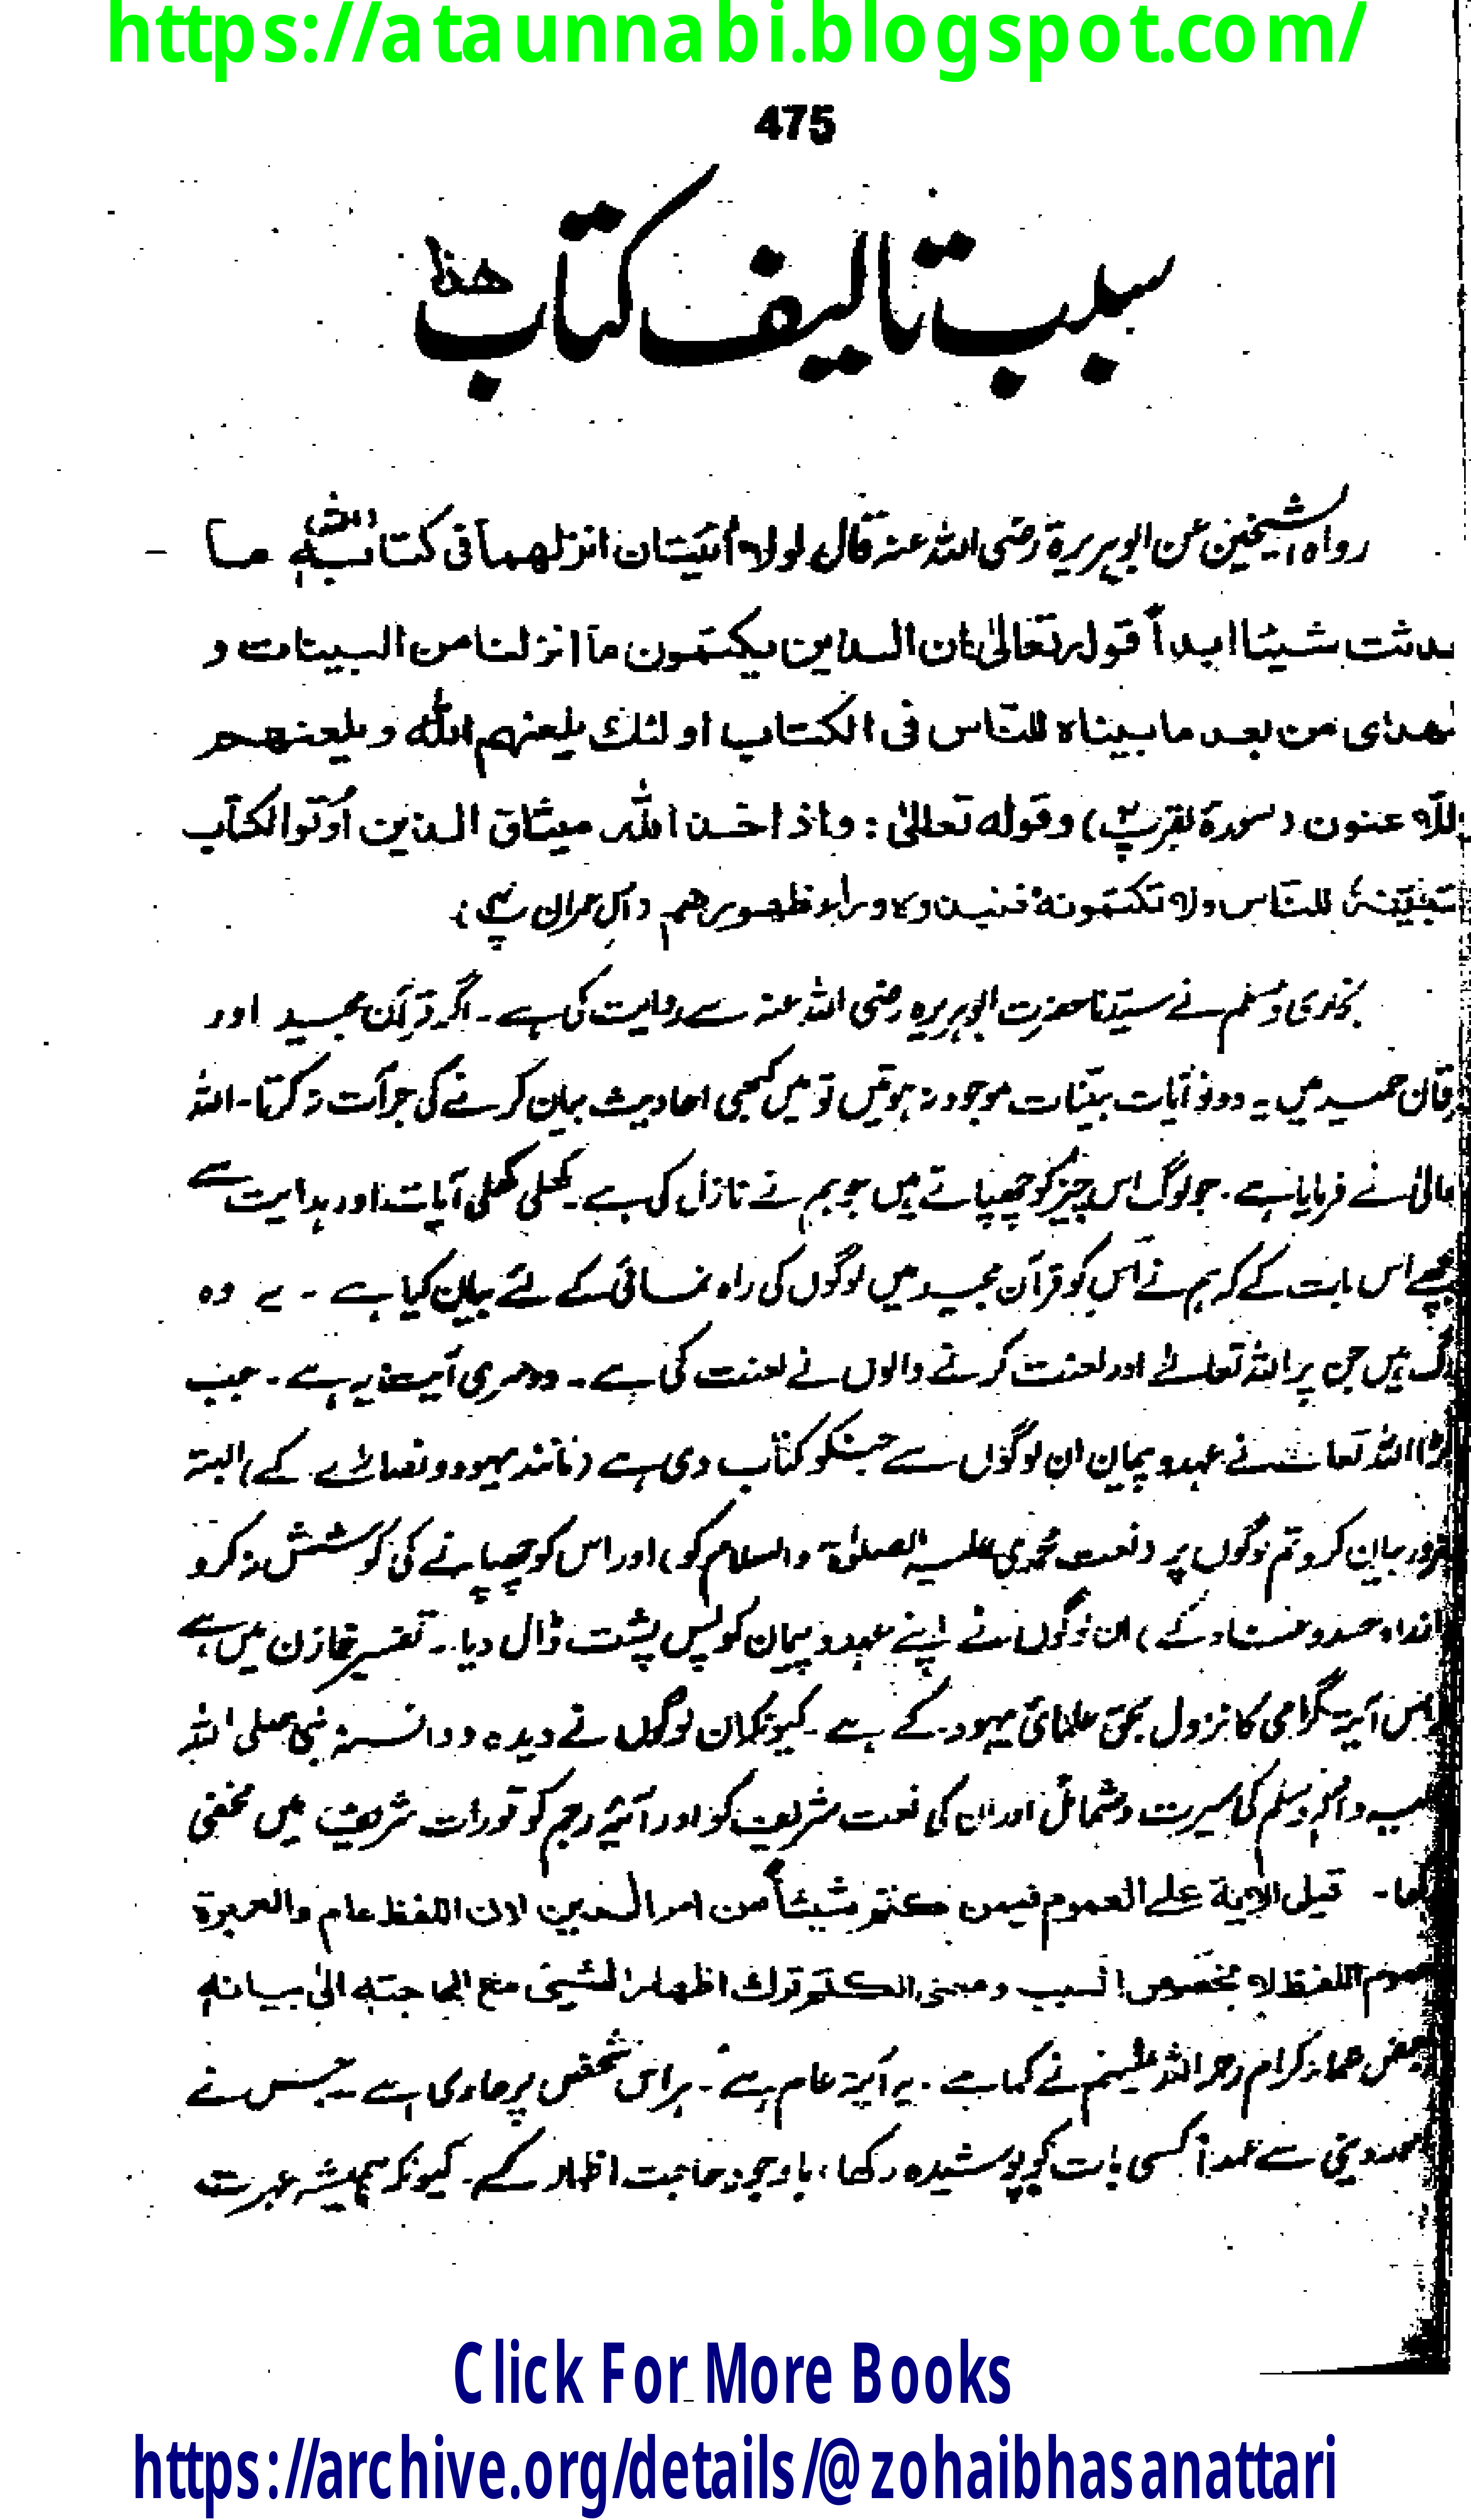 https://ataunnabi.blogspot.com/
475
سبب تالیف کتاب ھذا
رواہ الشیخین عن ابو ہریرۃ رضی اللہ عنہ قال لولا اٰیتان انزلھما فی کتابہ اللہ ما
حدثت شیئا ابداً قولہ تعالیٰ ان الذین یکتمون ما انزلنا من البینات و
لھدای من بعد ما بیناہ للناس فی الکتاب اولئك یلعنہم اللہ و یلعنھم
اللاعنون (سورۃ بقرہ پ۲) وقوله تعالیٰ : واذ اخذ اللہ میثاق الذین اُوتوا الکتاب
تبیننہٗ للناس ولا تکتمونہٗ فنبذوہ وراء ظھورھم (آل عمران پ۴)
بخاری و مسلم نے سیدنا حضرت ابوہریرہ رضی اللہ عنہ سے روایت کی ہے ۔ اگر قرآن مجید اور
فرقان حمید میں یہ دونوں آیات بینات موجود نہ ہوتیں تو میں کبھی احادیث بیان کرنے کی جرآت نہ کرتا ۔ اللہ
تعالیٰ نے فرمایا ہے ۔ جو لوگ اس چیز کو چھپاتے ہیں جو ہم نے نازل کی ہے ۔ کھلی کھلی آیات اور ہدایت سے
پیچھے اس بات کے کہ ہم نے اس کو قرآن مجید میں لوگوں کی راہ نمائی کے لئے بیان کیا ہے ۔ یہ وہ
لوگ ہیں جن پر اللہ تعالےٰ اور لعنت کرنے والوں نے لعنت کی ہے ۔ دوسری آیت یہ ہے ۔ جب
پکڑا اللہ تعالےٰ نے عہد و پیمان ان لوگوں سے جنکو کتاب دی ہے (مانند یہود و نصارےٰ کے) البتہ
ضرور بیان کرو تم لوگوں پر (نعت محمدی علیہ الصلوٰۃ والسلام کو) اور اس کو چھپانے کی کوشش نہ کرو
(ازراہ حسد و عناد کے) ان لوگوں نے اپنے عہد و پیمان کو پس پشت ڈال دیا ۔ تفسیر خازن میں ہے
اس آیۃ گرامی کا نزول بحق علمائ یہود کے ہے ۔ کیونکہ ان لوگوں نے دیدہ و دانستہ نبی صلی اللہ
علیہ وآلہٖ وسلم کی سیرت و شمائل اور ان کی نعت شریف کو اور آیۂ رجم کو تورات شریف میں مخفی
رکھا ۔ قیل الایۃ علے العموم فیمن کتم شیئاً من امر الدین لان اللفظ عام والعبرۃ
بعموم اللفظ لا بخصوص السبب و معنی الکتم ترك اظهار الشیئ مع الحاجتہ الیٰ بیانہ
بعض علماء کرام رحمۃ اللہ علیہم نے کہا ہے ۔ یہ آیۃ عام ہے ۔ ہر اس شخص پر حاوی ہے ۔ جس نے
امور دینی سے عمداً کسی بات کو پوشیدہ رکھا ، باوجود حاجت اظہار کے ۔ کیونکہ ہمیشہ عبرت
Click For More Books
https://archive.org/details/@zohaibhasanattari